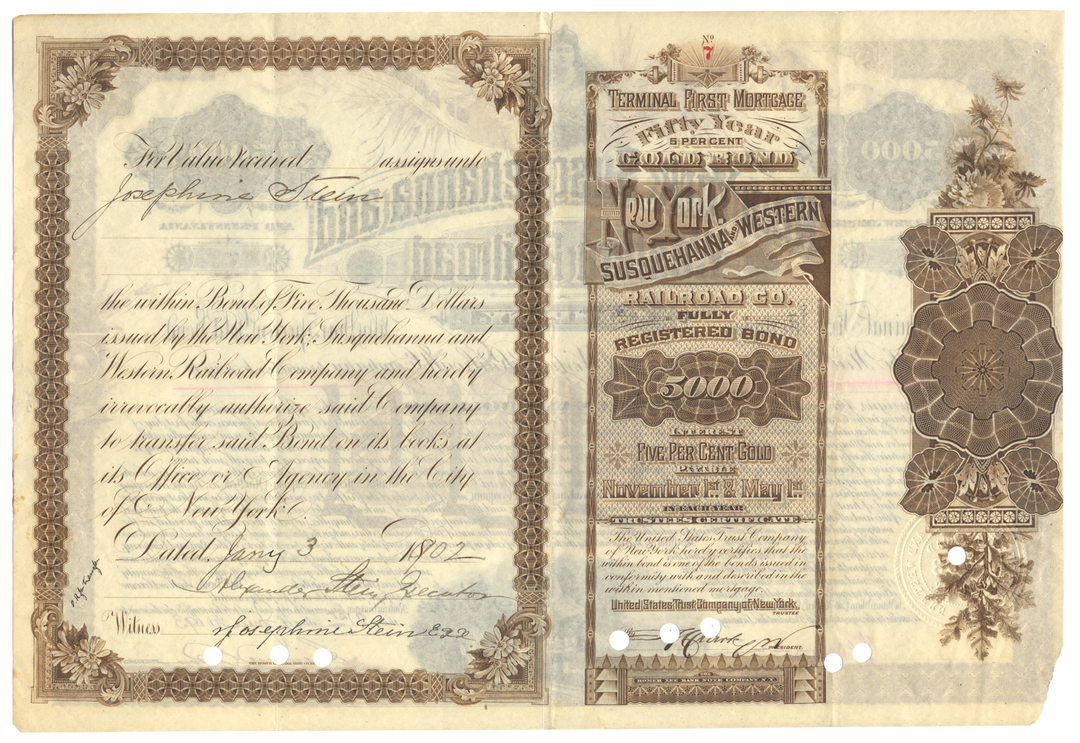 For Value Received assigns unto
Josephine Stein
the within Bond of Five Thousand Dollars
issued by the New York, Susquehanna and
Western Railroad Company and hereby
irrevocably authorize said Company
to transfer said Bond on its books at
its Office or Agency in the City
of New York
Dated, Jany 3 1902
Alexander Stein Executor
Witness of Josephine Stein
No
7
TERMINAL FIRST MORTGAGE
Fifty Year
5 PER CENT
GOLD BOND
New York,
SUSQUEHANNA AND WESTERN
RAILROAD CO.
FULLY
REGISTERED BOND
5000
INTEREST
FIVE PER CENT GOLD
PAYABLE
November 1st & May 1st
IN EACH YEAR
TRUSTEES CERTIFICATE
The United States Trust Company
of New York hereby certifies that the
within bond is one of the bonds issued in
conformity with and described in the
within mentioned mortgage.
United States Trust Company of New York,
TRUSTEE
PRESIDENT.
HOMER LEE BANK NOTE COMPANY, N.Y.